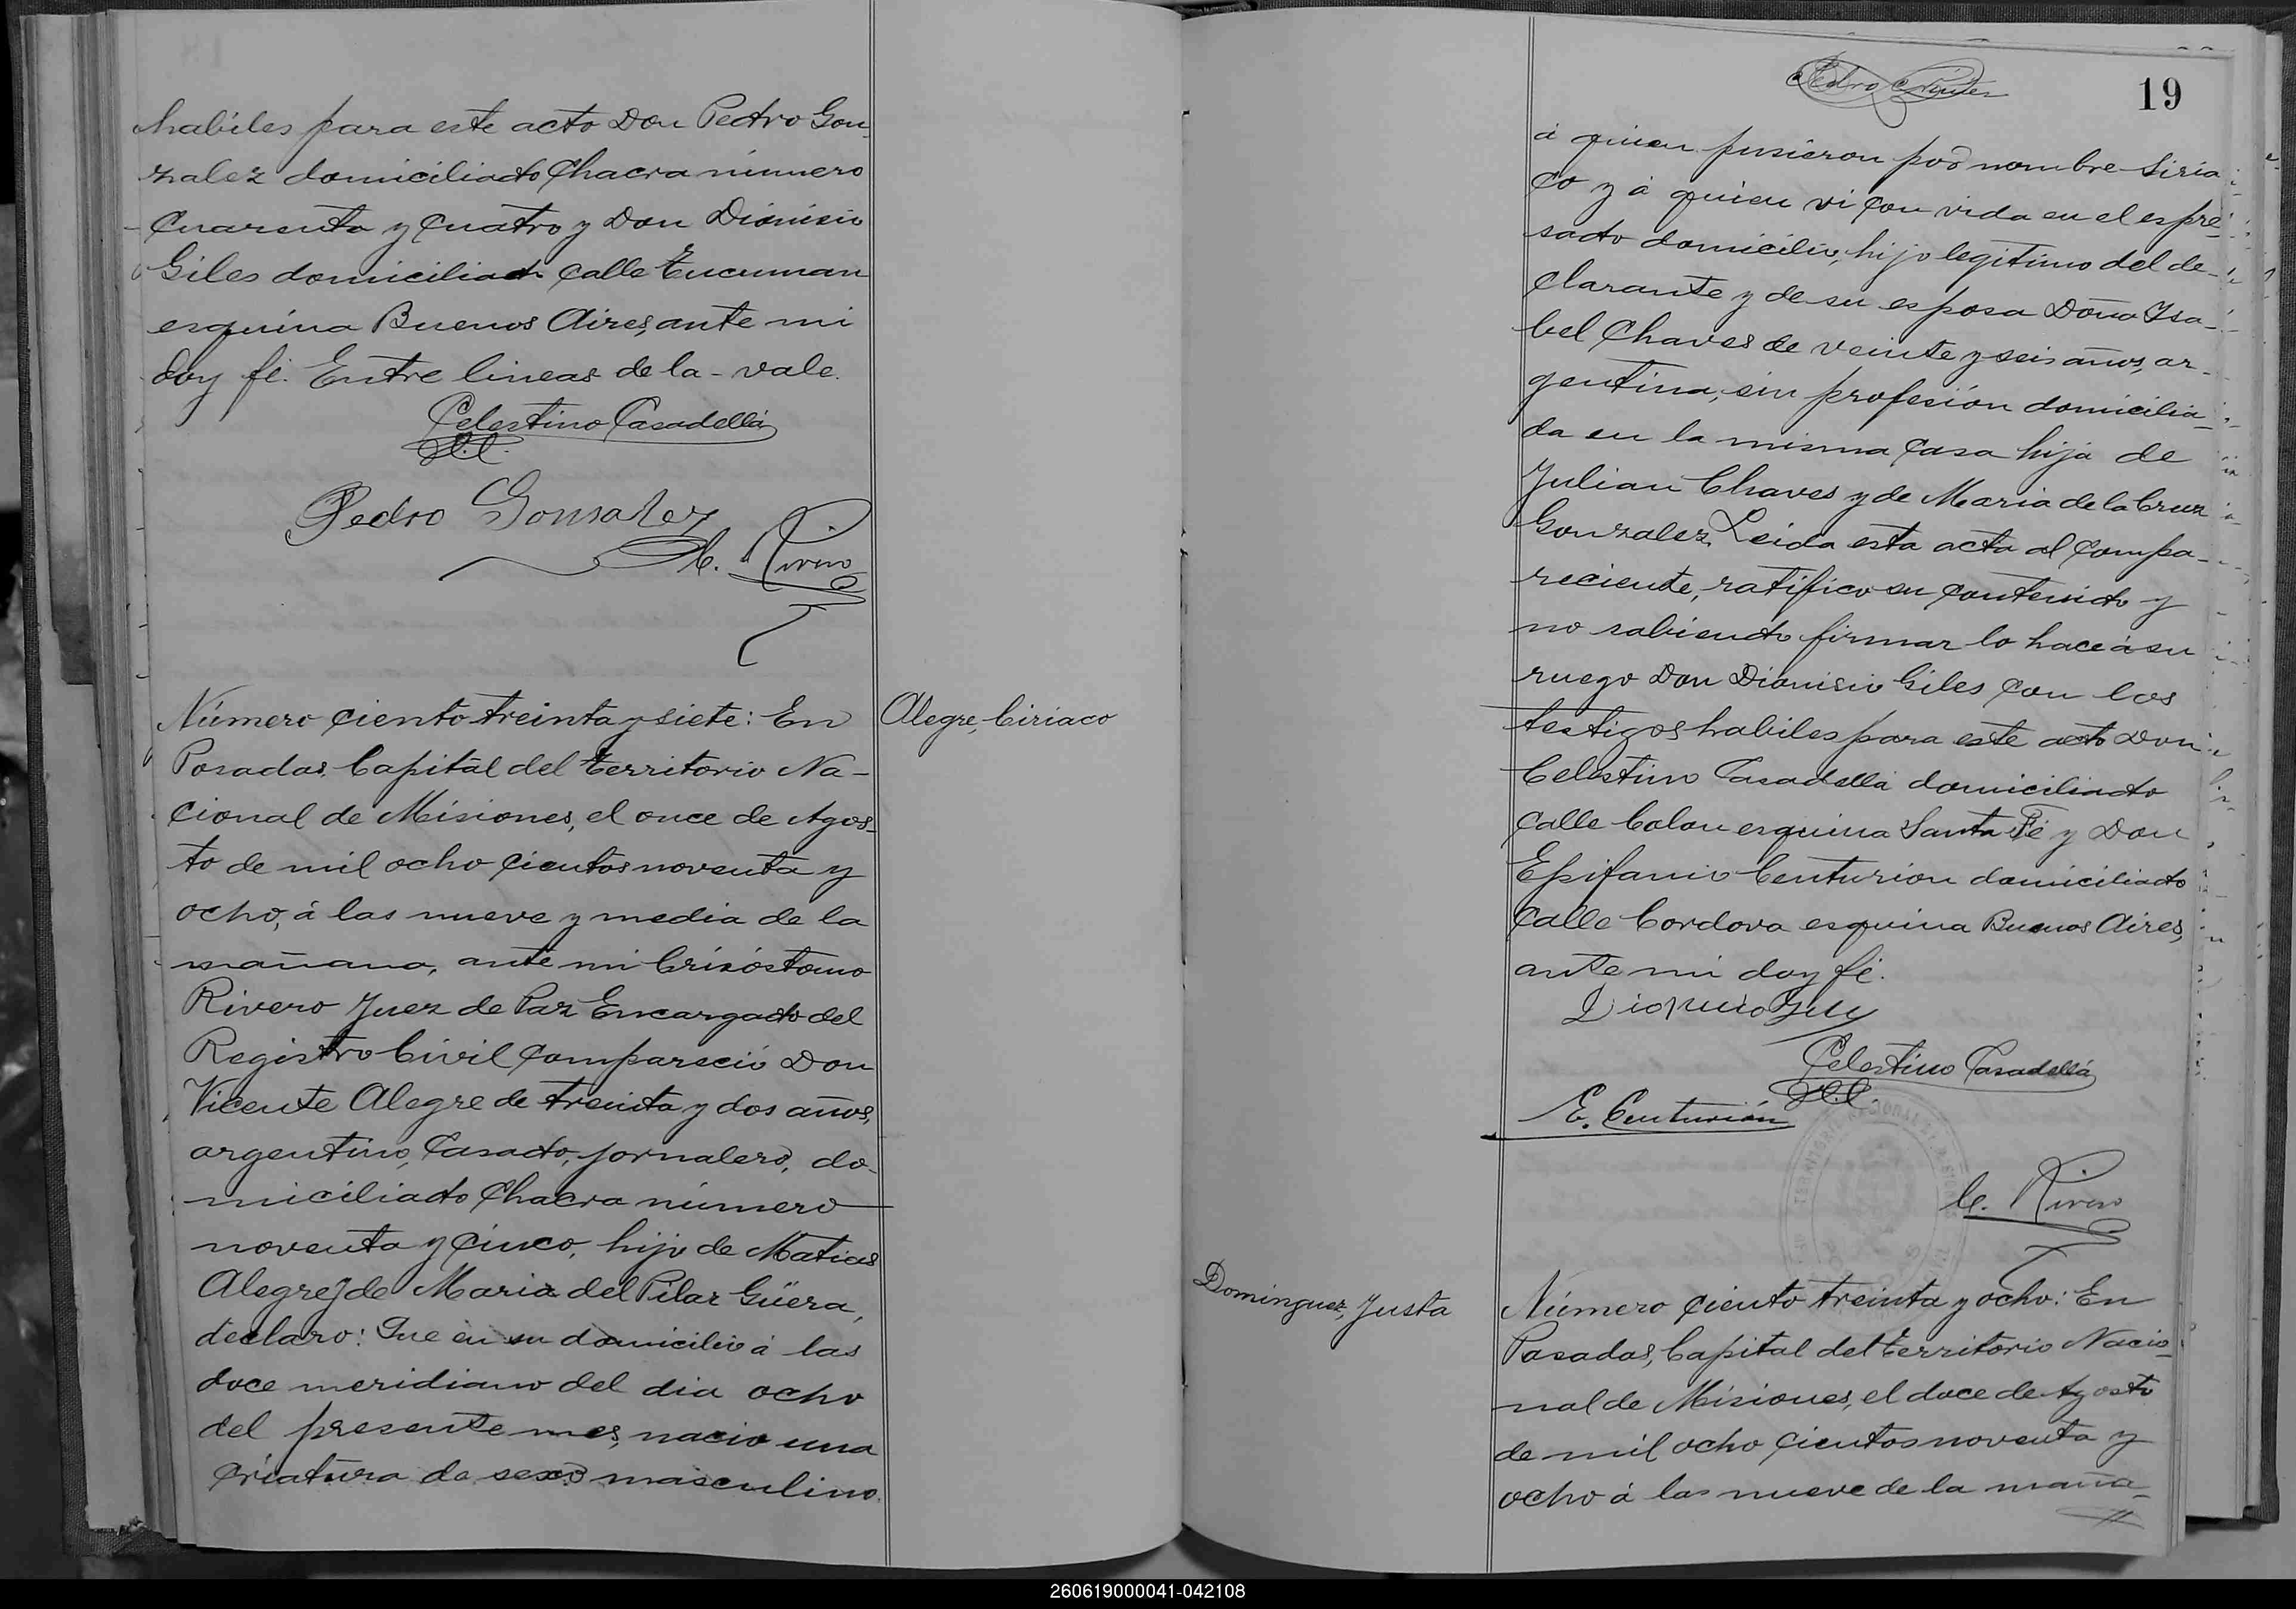 habiles para este acto Don Pedro Gon-
zalez domiciliado Chacra número
Cuarenta y Cuatro y Don Dionisio
Giles domiciliado Calle Tucuman
esquina Buenos Aires, ante mi
doy fé. Entre lineas de la - vale.
Celestino Casadellá
Pedro Gonsalez
C. Rivero
Número ciento treinta y siete: En
Alegre, Ciriaco
Posadas, Capital del territorio Na-
cional de Misiones, el once de Agos-
to de mil ocho cientos noventa y
ocho, á las nueve y media de la
mañana, ante mi Crisóstomo
Rivero Juez de Paz Encargado del
Registro Civil Compareció Don
Vicente Alegre de treinta y dos años,
argentino, Casado, jornalero, do-
miciliado Chacra número
noventa y Cinco, hijo de Matias
Alegre y de Maria del Pilar Güera,
declaro: Que en su domicilio á las
doce meridiano del dia ocho
del presente mes, nacio una
Criatura de sexo masculino
19
á quien pusieron por nombre Siria
co y á quien vi con vida en el espre-
sado domicilio, hijo legitimo del de-
clarante y de su esposa Doña Isa-
bel Chaves de veinte y seis años, ar-
gentina, sin profesión domicilia-
da en la misma casa hija de
Julian Chaves y de Maria de la Cruz
Gonzalez. Leida esta acta al Compa-
reciente, ratifico su contenido y
no sabiendo firmar lo hace á su
ruego Don Dionisio Giles con los
testigos habiles para este acto Don
Celestino Casadellá domiciliado
Calle Colon esquina Santa Fé y Don
Epifanio Centurion domiciliado
Calle Cordova esquina Buenos Aires,
ante mi doy fé.
Celestino Casadellá
E. Centurión
C. Rivero
Dominguez, Justa
Número ciento treinta y ocho: En
Posadas, Capital del territorio Nacio-
nal de Misiones, el doce de Agosto
de mil ocho cientos noventa y
ocho á las nueve de la maña-
260619000041-042108